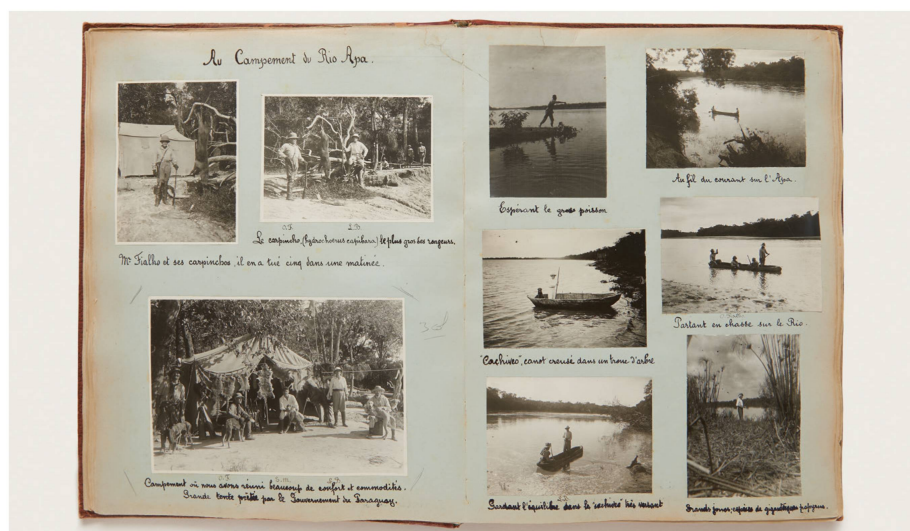 Au Campement du Rio Apa.
Le carpincho, (hydrochoerus capibara) le plus gros des rongeurs.
Mr Fialho et ses carpinchos, il en a tué cinq dans une matinée.
Campement où nous avons réuni beaucoup de confort et commodités.
Grande tente prêtée par le Gouvernement du Paraguay.
Espérant le gros poisson
Au fil du courant sur l'Apa.
"Cachiveo", canot creusé dans un tronc d'arbre.
Partant en chasse sur le Rio.
Gardant l'équilibre dans le "cachiveo" très versant
Grands joncs, espèces de gigantesques papyrus.